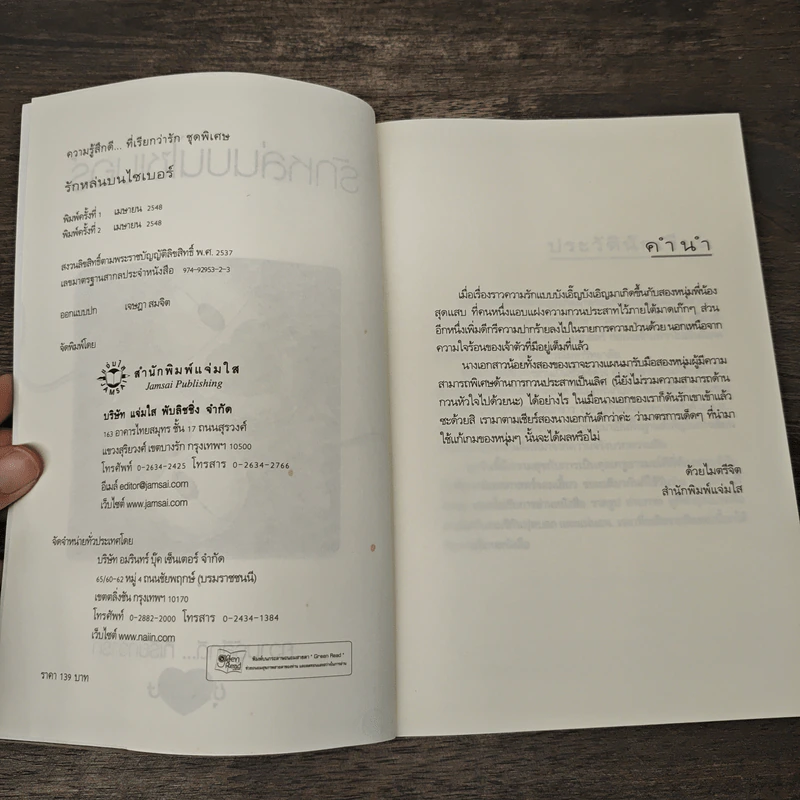 ความรู้สึกดี... ที่เรียกว่ารัก ชุดพิเศษ
รักหล่นบนไซเบอร์
พิมพ์ครั้งที่ 1 เมษายน 2548
พิมพ์ครั้งที่ 2 เมษายน 2548
สงวนลิขสิทธิ์ตามพระราชบัญญัติลิขสิทธิ์ พ.ศ. 2537
เลขมาตรฐานสากลประจำหนังสือ 974-92953-2-3
ออกแบบปก เจษฎา สมจิต
จัดพิมพ์โดย
สำนักพิมพ์แจ่มใส
Jamsai Publishing
บริษัท แจ่มใส พับลิชชิ่ง จำกัด
163 อาคารไทยสมุทร ชั้น 17 ถนนสุรวงศ์
แขวงสุริยวงศ์ เขตบางรัก กรุงเทพฯ 10500
โทรศัพท์ 0-2634-2425 โทรสาร 0-2634-2766
อีเมล์ editor@jamsai.com
เว็บไซต์ www.jamsai.com
จัดจำหน่ายทั่วประเทศโดย
บริษัท อมรินทร์ บุ๊ค เซ็นเตอร์ จำกัด
65/60-62 หมู่ 4 ถนนชัยพฤกษ์ (บรมราชชนนี)
เขตตลิ่งชัน กรุงเทพฯ 10170
โทรศัพท์ 0-2882-2000 โทรสาร 0-2434-1384
เว็บไซต์ www.naiin.com
Green Read
พิมพ์บนกระดาษถนอมสายตา "Green Read"
ราคา 139 บาท
คำนำ
เมื่อเรื่องราวความรักแบบบังเอิ๊ญบังเอิญมาเกิดขึ้นกับสองหนุ่มพี่น้อง
สุดแสบ ที่คนหนึ่งแอบแฝงความกวนประสาทไว้ภายใต้มาดเก๊กๆ ส่วน
อีกหนึ่งเพิ่มดีกรีความปากร้ายลงไปในรายการความป่วนด้วย นอกเหนือจาก
ความใจร้อนของเจ้าตัวที่มีอยู่เต็มที่แล้ว
นางเอกสาวน้อยทั้งสองของเราจะวางแผนมารับมือสองหนุ่มผู้มีความ
สามารถพิเศษด้านการกวนประสาทเป็นเลิศ (นี่ยังไม่รวมความสามารถด้าน
กวนหัวใจไปด้วยนะ) ได้อย่างไร ในเมื่อนางเอกของเราก็ดันรักเขาเข้าแล้ว
ซะด้วยสิ เรามาตามเชียร์สองนางเอกกันดีกว่าค่ะ ว่ามาตรการเด็ดๆ ที่นำมา
ใช้แก้เกมของหนุ่มๆ นั้นจะได้ผลหรือไม่
ด้วยไมตรีจิต
สำนักพิมพ์แจ่มใส